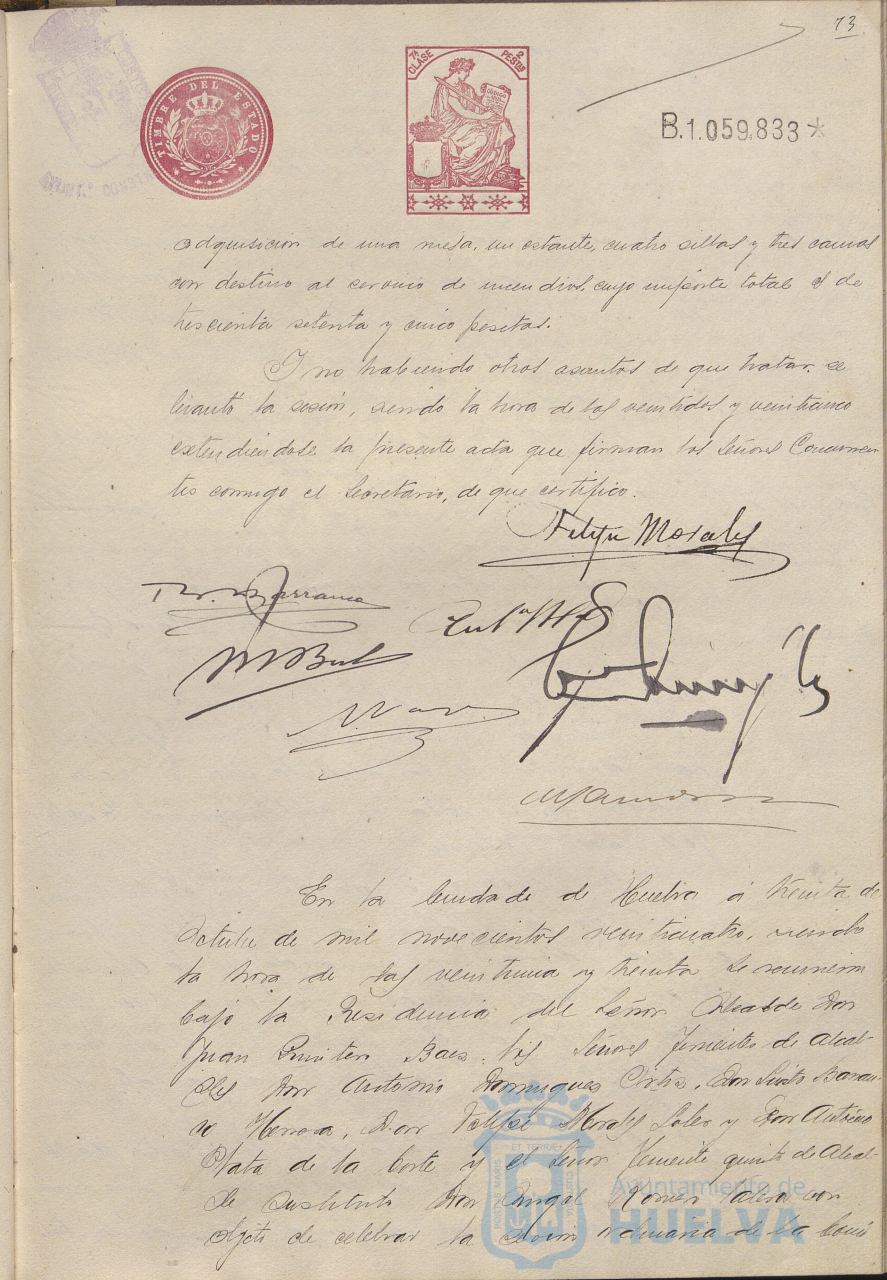 73
TIMBRE DEL ESTADO
7ª CLASE 2 PESTAS
CODIGO
B.1.059.833*
adquisición de una mesa, un estante, cuatro sillas y tres camas
con destino al servicio de incendios, cuyo importe total es de
trescienta setenta y cinco pesetas.
Y no habiendo otros asuntos de que tratar, se
levantó la sesión, siendo la hora de las veintidos y veinticinco
extendiéndose la presente acta que firman los Señores Concurren
tes conmigo el Secretario, de que certifico.
Felipe Morales
En la Ciudad de Huelva á treinta de
Octubre de mil novecientos veinticuatro, siendo
la hora de las veintiuna y treinta se reunieron
bajo la Presidencia del Señor Alcalde Don
Juan Quintero Baez, los Señores Tenientes de Alcal-
des Don Antonio Dominguez Ortiz, Don Sixto Barran
co Herrera, Don Felipe Morales Soler y Don Antonio
Plata de la Corte y el Señor Teniente quinto de Alcal-
de sustituto Don Angel Romero con
objeto de celebrar la sesión ordinaria de la Comi
Ayuntamiento de
HUELVA